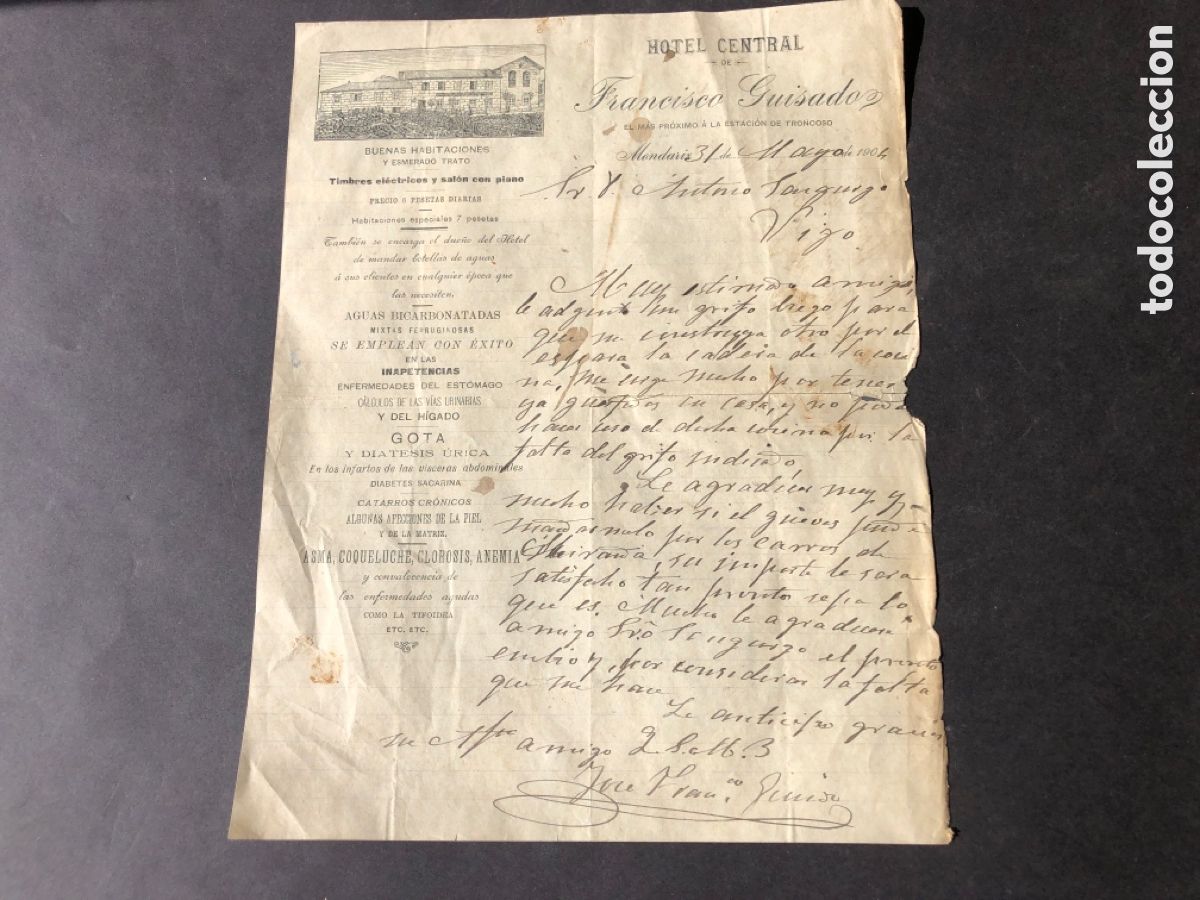 HOTEL CENTRAL
DE
Francisco Guisado
EL MÁS PRÓXIMO Á LA ESTACIÓN DE TRONCOSO
Mondariz 31 de Mayo de 1904
Sr D. Antonio Sanjurjo
Vigo
BUENAS HABITACIONES
Y ESMERADO TRATO
Timbres eléctricos y salón con piano
PRECIO 6 PESETAS DIARIAS
Habitaciones especiales 7 pesetas
También se encarga el dueño del Hotel
de mandar botellas de aguas
á sus clientes en cualquier época que
las necesiten.
AGUAS BICARBONATADAS
MIXTAS FERRUGINOSAS
SE EMPLEAN CON ÉXITO
EN LAS
INAPETENCIAS
ENFERMEDADES DEL ESTÓMAGO
CÁLCULOS DE LAS VÍAS URINARIAS
Y DEL HÍGADO
GOTA
Y DIATESIS ÚRICA
En los infartos de las vísceras abdominales
DIABETES SACARINA
CATARROS CRÓNICOS
ALGUNAS AFECCIONES DE LA PIEL
Y DE LA MATRIZ.
ASMA, COQUELUCHE, CLOROSIS, ANEMIA
y convalecencia de
las enfermedades agudas
COMO LA TIFOIDEA
ETC. ETC.
Muy estimado amigo,
le adjunto un grifo biejo para
que me construya otro por el
es para la caldera de la coci
na, me urge mucho por tener
ya guespedes en casa, y no poder
hacer uso de dicha cocina por la
falta del grifo indicado,
Le agradicere muy y
mucho haber si el gueves puede
mandarmelo por los carros de
Miranda, su importe le sera
satisfecho tan pronto sepa lo
que es. Mucho le agradicere
amigo Sanjurjo el pronto
embio y por considerar la falta
que me hace
Le anticipo gracias
su Afmo amigo Q S. M. B
Jose Franco Guisado
todocoleccion